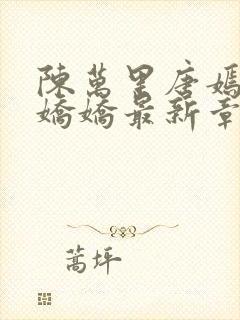 陳萬里唐嫣
嬌嬌最新章
蒿坪